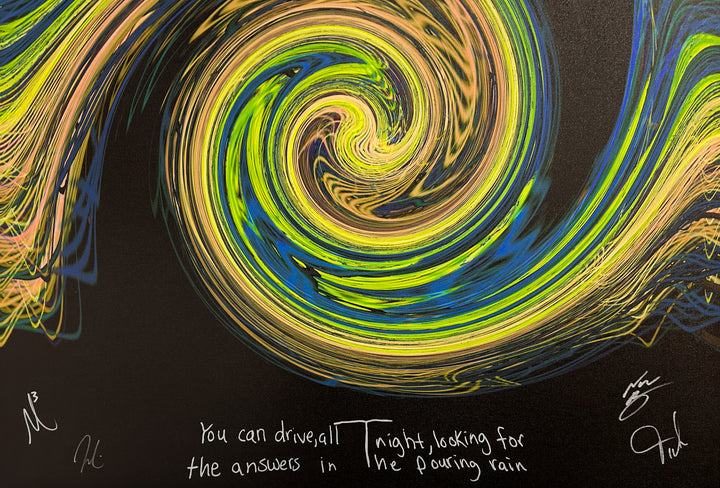 You can drive, all Tnight, looking for
the answers in The pouring rain